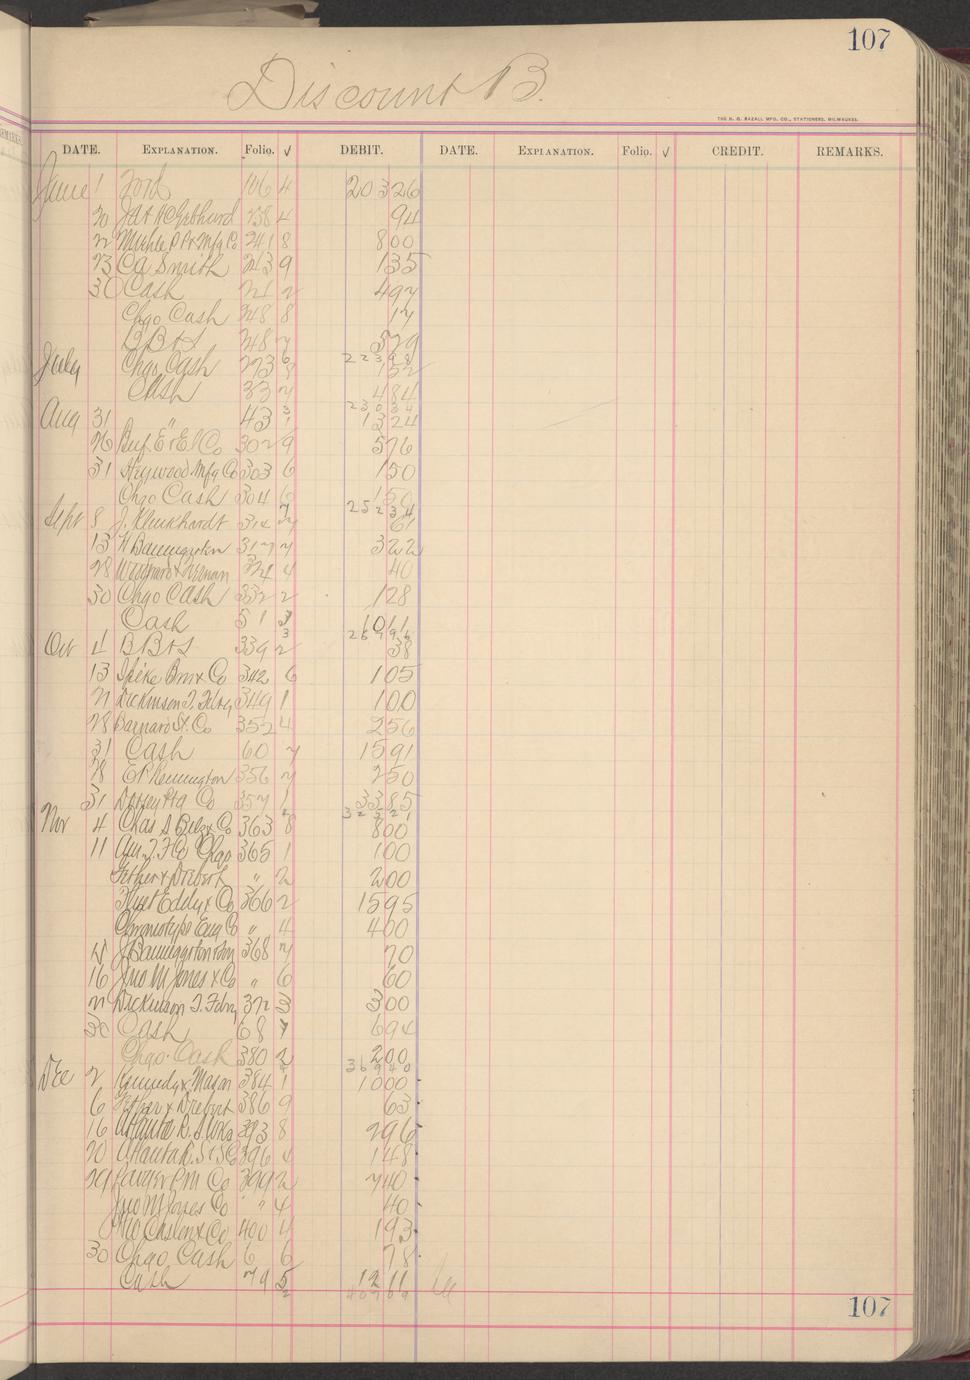 107
Discount B.
THE H. G. RAZALL MFG. CO., STATIONERS, MILWAUKEE.
DATE. EXPLANATION. Folio. √ DEBIT. DATE. EXPLANATION. Folio. √ CREDIT. REMARKS.
June 1 Ford 106 4 203 26
20 238 4 94
22 Miehle P Pr Mfg Co 241 8 8 00
23 CA Smith 243 9 1 35
30 Cash 21 2 4 97
Chgo Cash 248 8 17
BB&S 248 7 5 79
223 98
July Chgo Cash 273 8 1 52
Cash 33 7 4 84
230 34
Aug 31 " 43 1 13 24
26 302 9 5 76
31 Heywood Mfg Co 303 6 1 50
Chgo Cash 304 6 1 50
252 34
Sept 8 J. Klinkhardt 314 7 61
13 H Baumgarten 317 7 3 22
28 324 4 40
30 Chgo Cash 332 2 1 28
Cash 51 3 10 11
267 96
Oct 4 BB&S 339 2 38
13 Spike Bros & Co 342 6 1 05
21 Dickinson T. Fdry 349 1 1 00
28 Barnard St. Co 352 4 2 56
31 Cash 60 7 15 91
28 E P Remington 356 7 2 50
31 Dorsey Ptg Co 357 1 33 85
323 21
Nov 4 363 8 8 00
11 Am. T. F Co Chgo 365 1 1 00
Fether & Drebert " 2 2 00
Eddy & Co 366 2 15 95
Chromotype Eng Co " 4 4 00
J Baumgarten 368 7 70
16 Jno M Jones & Co " 6 60
21 Dickinson T. Fdry 372 3 3 00
30 Cash 68 7 6 94
Chgo. Cash 380 2 2 00
369 40
Dec 2 Kennedy & Mason 384 1 10 00
6 Fether & Drebert 386 9 63
16 Atlanta R. S. Wks 393 8 2 96
20 Atlanta R. S. & S Co 396 4 1 48
29 P M Co 399 2 7 40
Jno M Jones Co " " 4 40
Caslon & Co 400 4 1 93
30 Chgo Cash 6 6 78
Cash 79 5 12 11
107